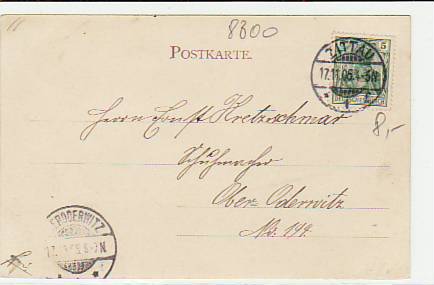 8300
POSTKARTE.
5
ZITTAU
17.11.05.4-5N.
Herrn Ernst Kretzschmar
8,-
Schuhmacher
Ober-Oderwitz
No. 149.
RODERWITZ